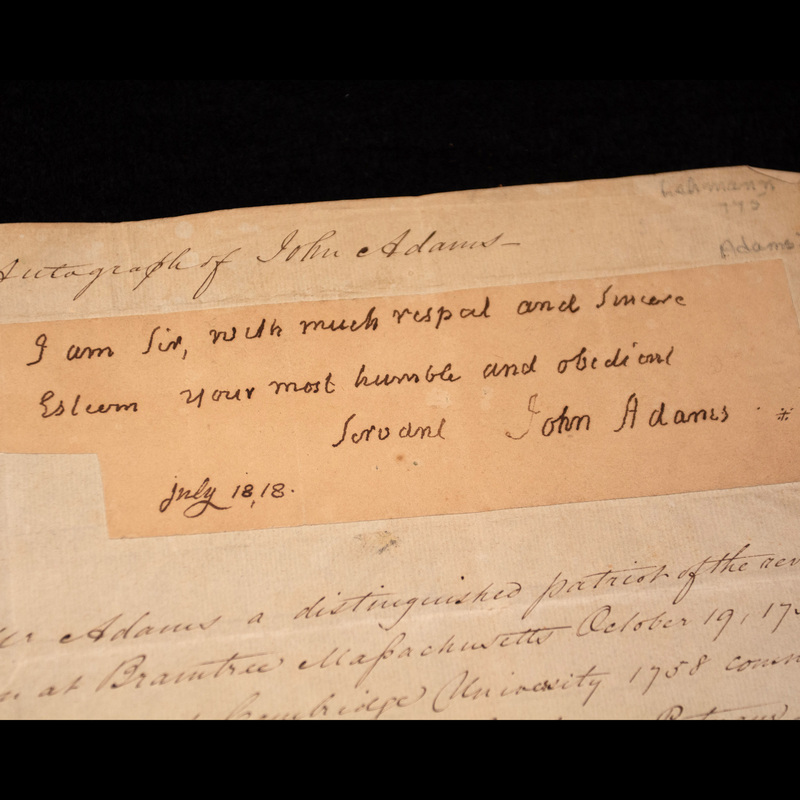 Lehmann
775
Autograph of John Adams—
Adams
I am Sir, with much respect and Sincere
Esteem your most humble and obedient
Servant John Adams . *
july 18, 18.
Adams a distinguished patriot of the rev
at Braintree Massachusetts October 19, 173
Cambridge University 1758